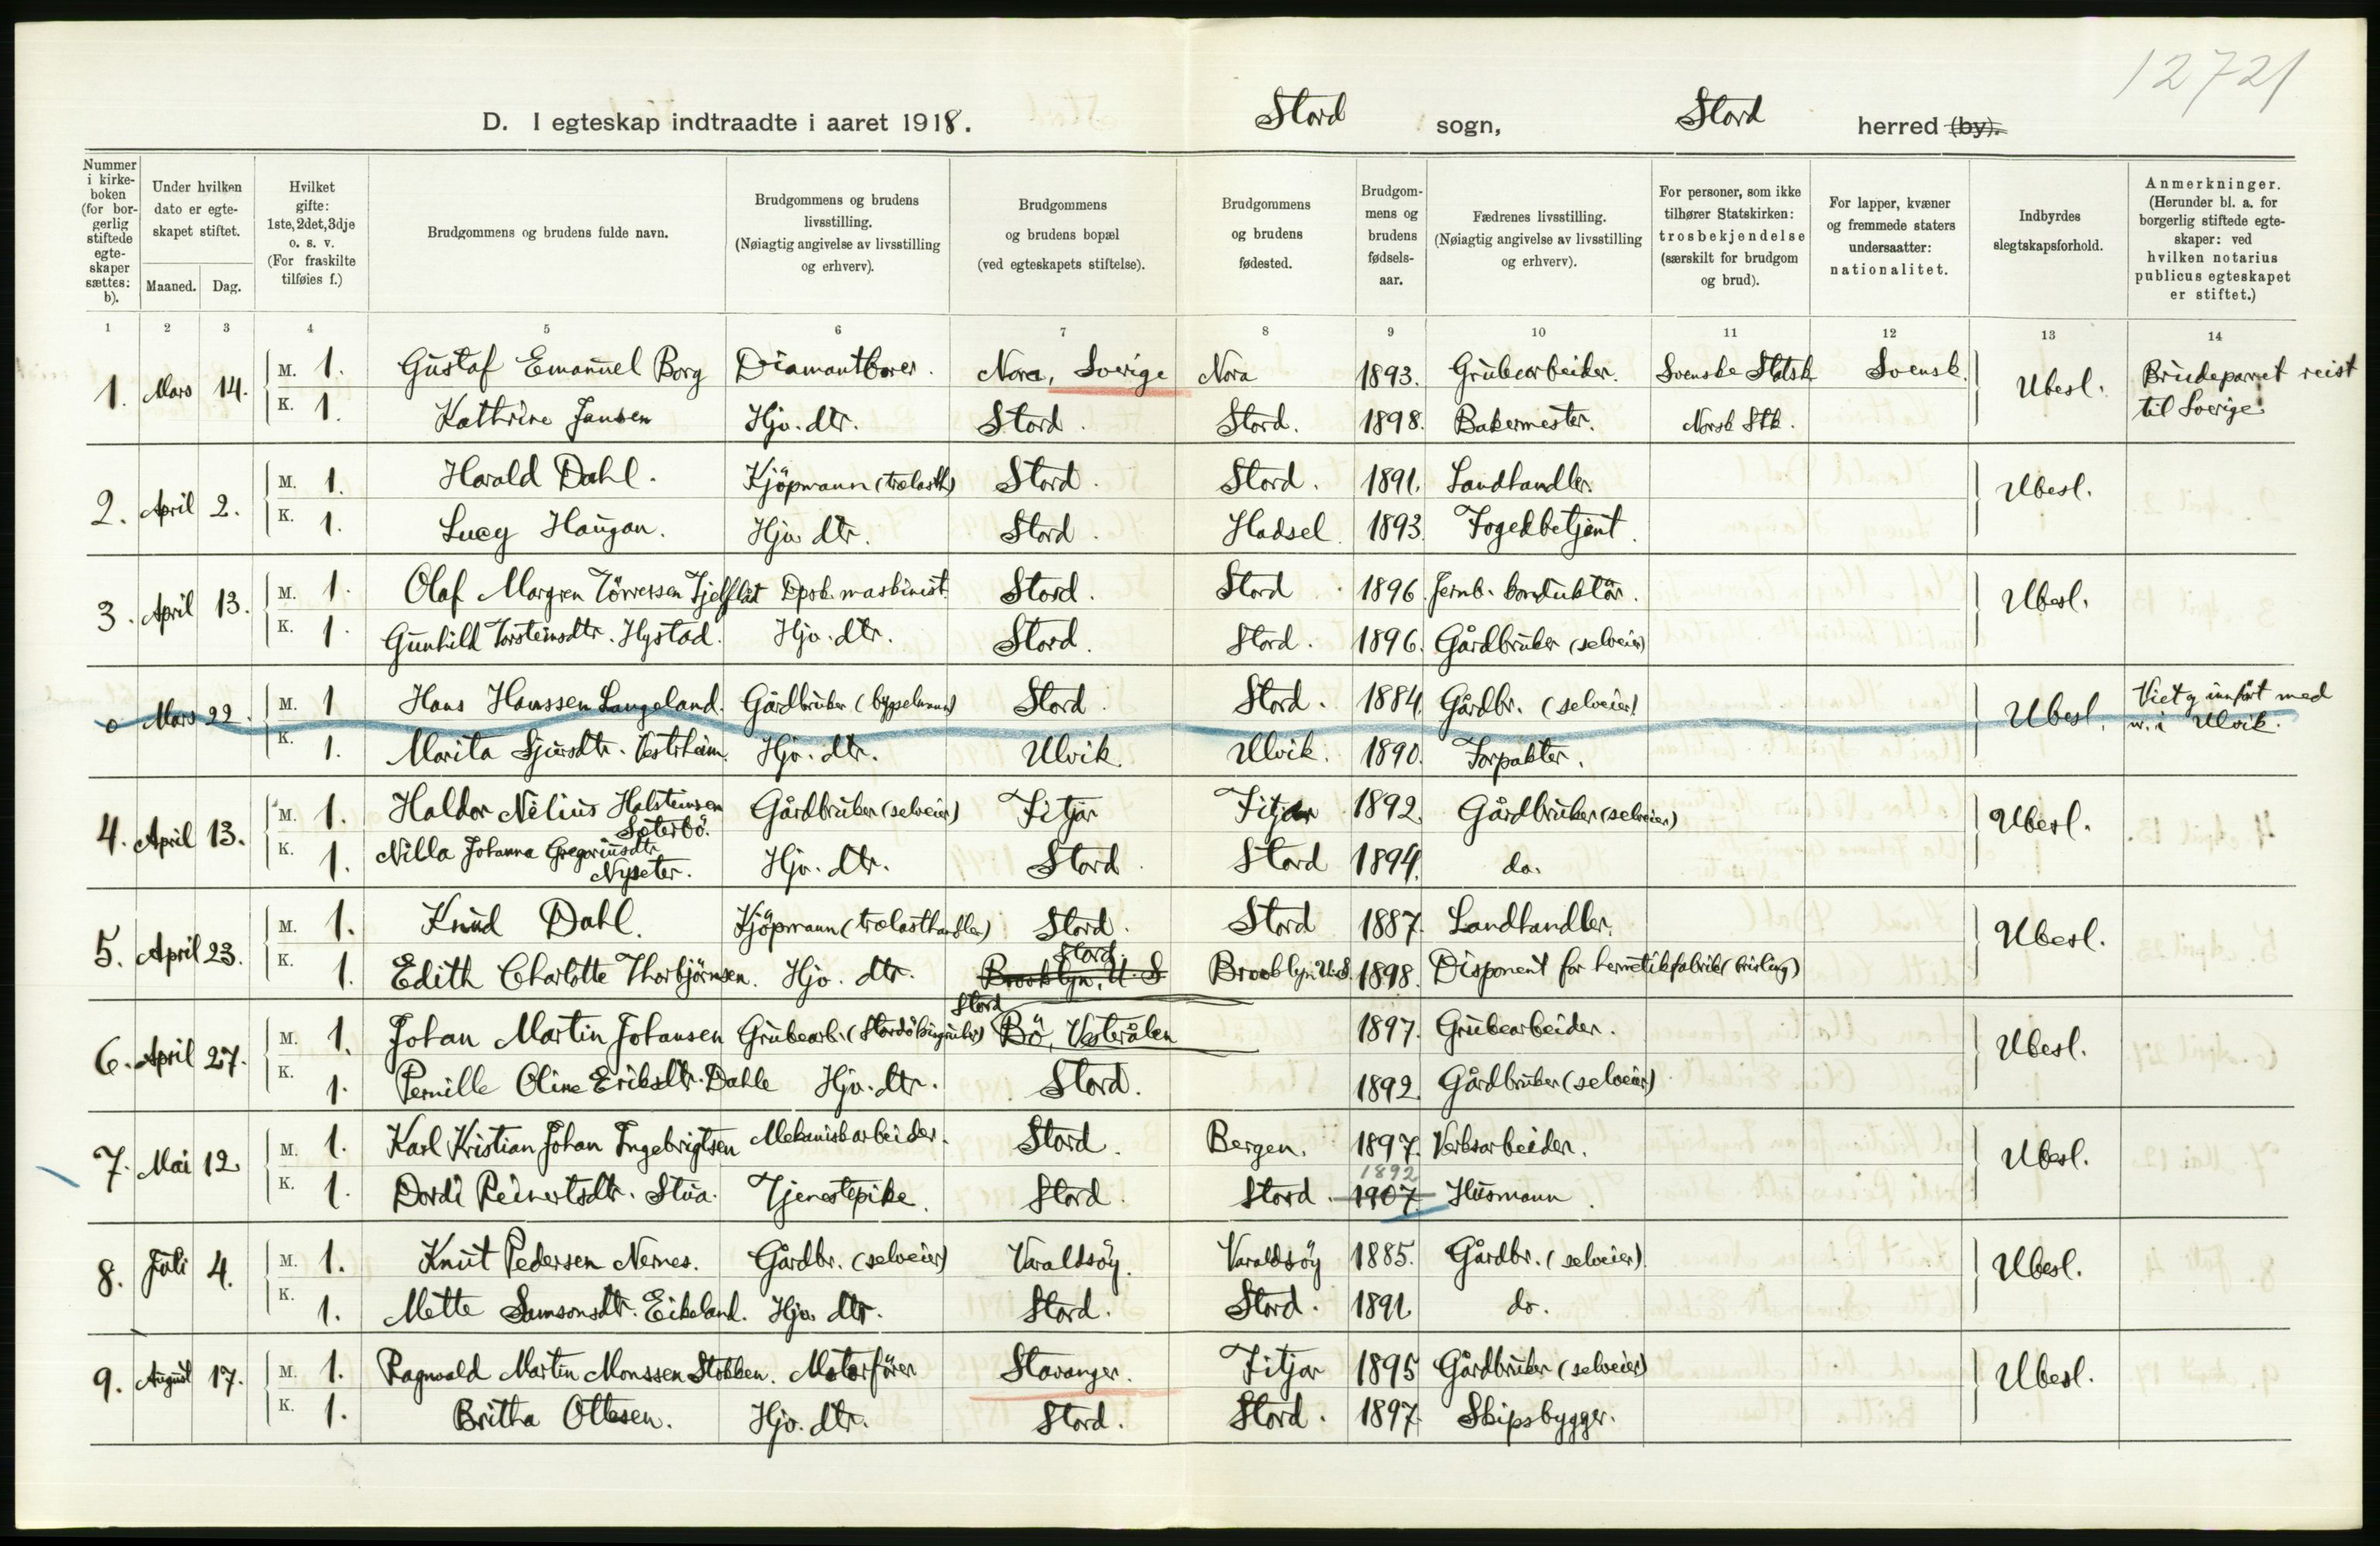 12721
D. I egteskap indtraadte i aaret 1918. Stord sogn, Stord herred (by).
Nummer i kirkeboken (for borgerlig stiftede egteskaper sættes: b).
Under hvilken dato er egteskapet stiftet.
Maaned. Dag.
Hvilket gifte: 1ste, 2det, 3dje o. s. v. (For fraskilte tilføies f.)
Brudgommens og brudens fulde navn.
Brudgommens og brudens livsstilling. (Nøiagtig angivelse av livsstilling og erhverv).
Brudgommens og brudens bopæl (ved egteskapets stiftelse).
Brudgommens og brudens fødested.
Brudgommens og brudens fødselsaar.
Fædrenes livsstilling. (Nøiagtig angivelse av livsstilling og erhverv).
For personer, som ikke tilhører Statskirken: trosbekjendelse (særskilt for brudgom og brud).
For lapper, kvæner og fremmede staters undersaatter: nationalitet.
Indbyrdes slegtskapsforhold.
Anmerkninger. (Herunder bl. a. for borgerlig stiftede egteskaper: ved hvilken notarius publicus egteskapet er stiftet.)
1 2 3 4 5 6 7 8 9 10 11 12 13 14
1. Mars 14. M. 1. Gustaf Emanuel Borg Diamantborer. Nora, Sverige Nora 1893. Grubearbeider. Svenske Statsk Svensk. Ubesl. Brudeparret reist
K. 1. Kathrine Jansen Hjv. dtr. Stord. Stord. 1898. Bakermester. Norsk Stk. til Sverige.
2. April 2. M. 1. Harald Dahl. Kjöpmann (trælasth) Stord. Stord. 1891. Landhandler. Ubesl.
K. 1. Lucy Haugan. Hjv. dtr. Stord. Hadsel 1893. Fogedbetjent.
3. April 13. M. 1. Olaf Margren Törresen Fjelflåt Dpsk. maskinist. Stord. Stord 1896. Jernb. konduktör. Ubesl.
K. 1. Gunhild Torsteinsdtr. Hystad. Hjv. dtr. Stord. Stord. 1896. Gårdbruker (selveier)
0 Mars 22. M. 1 Hans Hanssen Langeland. Gårdbruker (bygselmann) Stord. Stord. 1884. Gårdbr. (selveier) Ubesl. Viet g innført med
K. 1. Marita Sjursdtr. Vestrheim. Hjv. dtr. Ulvik. Ulvik. 1890. Forpakter. nr. i Ulvik.
4. April 13. M. 1. Haldor Nilius Halsteinsen Gårdbruker (selveier) Fitjar Fitjar 1892. Gårdbruker (selveier) Ubesl.
Sæterbö.
K. 1. Nilla Johanna Gregoriusdtr. Hjv. dtr. Stord. Stord 1894. do.
Nyseter.
5. April 23. M. 1. Knud Dahl. Kjöpmann (trælasthandler) Stord. Stord 1887. Landhandler. Ubesl.
Stord.
K. 1. Edith Charlotte Thorbjörnsen. Hjv. dtr. Brooklyn, U. S Brooklyn U. S. 1898. Disponent for hermetikfabrik (brisling)
Stord
6. April 27. M. 1. Johan Martin Johansen Grubearb. (Stordö kisgruber) Bö, Vesterålen 1897. Grubearbeider. Ubesl.
K. 1. Pernille Oline Eriksdtr. Dahle Hjv. dtr. Stord. 1892. Gårdbruker (selveier)
7. Mai 12 M. 1. Karl Kristian Johan Ingebrigtsen Mekanisk arbeider. Stord. Bergen. 1897. Verksarbeider. Ubesl.
1892
K. 1. Dordi Reinertsdtr. Stua. Tjenestepike. Stord. Stord. 1907. Husmann.
8. Juli 4. M. 1. Knut Pedersen Nernes. Gårdbr. (selveier) Varaldsöy. Varaldsöy 1885. Gårdbr. (selveier). Ubesl.
K. 1. Mette Samsonsdtr. Eikeland. Hjv. dtr. Stord. Stord. 1891. do.
9. August 17. M. 1. Ragnvald Martin Monssen Stokken. Motorförer Stavanger. Fitjar 1895 Gårdbruker (selveier) Ubesl.
K. 1. Britha Ottesen. Hjv. dtr. Stord. Stord. 1897. Skipsbygger.